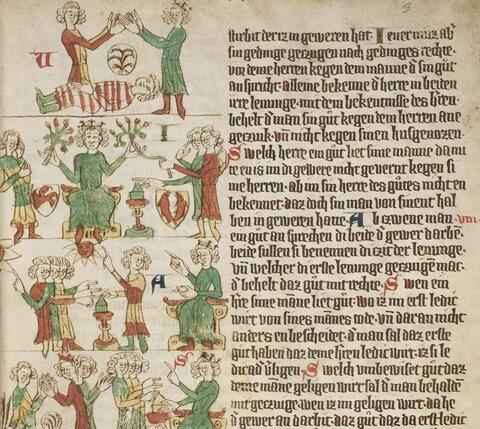 3
sturbit der iz in geweren hat. Jener muz ab'
sin gedinge gezugen nach gedinges rechte.
vor deme herren kegen dem manne d' sin gut
an spricht. alleine bekenne d' herre in beiden
irre lenunge. mit dem bekentnisse des h'ren
behelt d' man sin gut kegen dem herren ane
gezuk. vn̄ nicht kegen sinen husgenozen.
Swelch herre ein gut liet sime manne da mi
te en is im di gewere nicht gevernt kegen si
me herren. ab im sin herre des gutes nicht en
bekennet. daz doch sin man von sinent hal
ben in geweren hatte. Ab zwene man. viii
ein gut an sprechen di beide d' gewer darbē.
beide sullen si benemen di czit der lenunge.
vn̄ welcher di erste lenunge gezugen mac.
d' behelt daz gut mit rechte. Swen ein
h're sime māne liet gut. wo iz im erst ledic
wirt von sines mānes tode. vn̄ daran nicht
anders en bescheidet. d' man sal daz erste
gut haben daz deme h'ren ledic wirt. iz si le
dic ad' Swelch umbewiset gut daz
deme māne geligen wirt sal d' man behaldē
mit gezuge. wen iz im geligen wirt. da he
d' gewer an darbit. daz gut daz da erst ledic